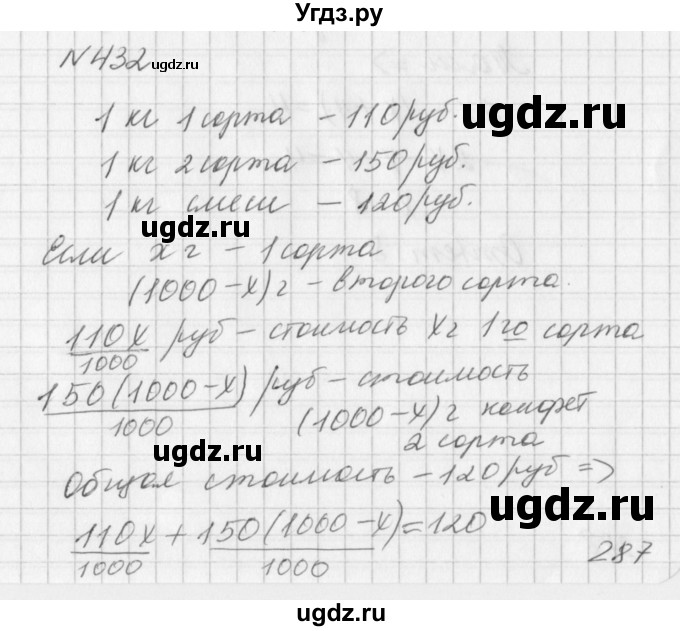 Угдз.ру
N432
ugdz.ru
1 кг 1 сорта – 110 руб.
ugdz.ru
1 кг 2 сорта – 150 руб.
1 кг смеси – 120 руб.
ugdz.ru
Если x г – 1 сорта
(1000-x) г – второго сорта.
110x/1000 руб – стоимость x г 1го сорта
150(1000-x)/1000 руб – стоимость
(1000-x) г конфет
2 сорта
ugdz.ru
Общая стоимость – 120 руб =>
ugdz.ru
110x/1000 + 150(1000-x)/1000 = 120
287
ugdz.ru
ugdz.ru